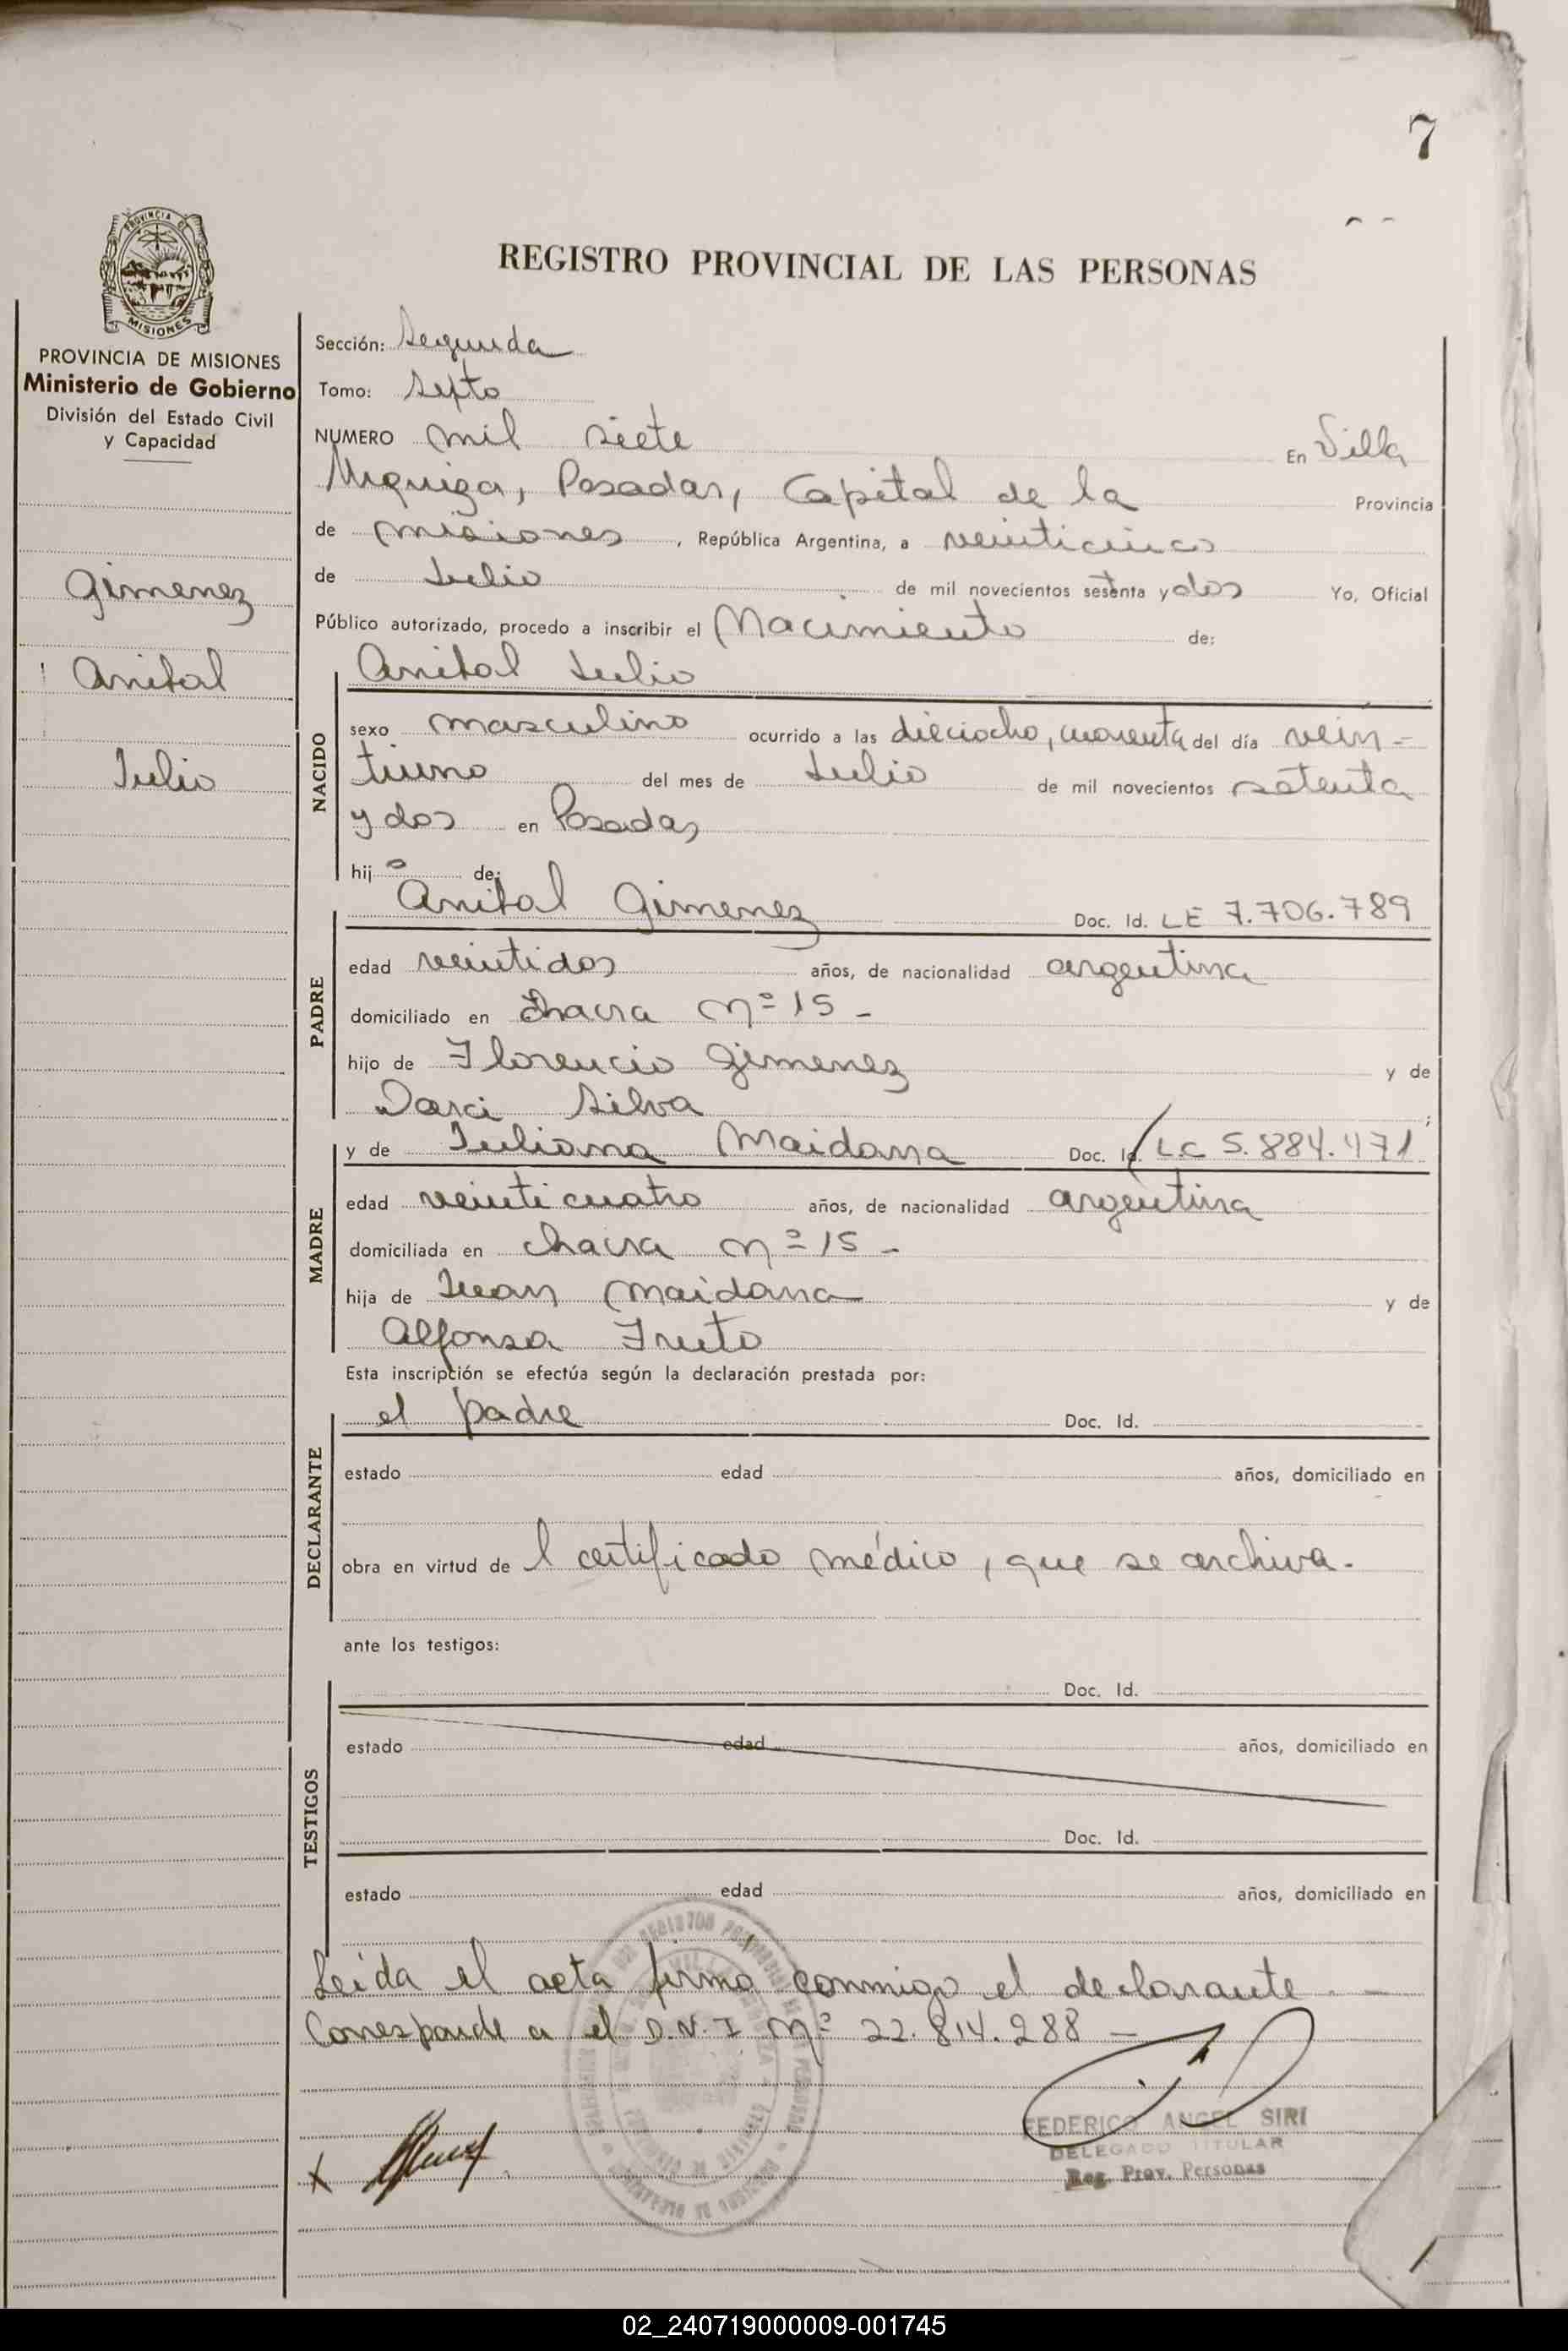 7
PROVINCIA DE
MISIONES
REGISTRO PROVINCIAL DE LAS PERSONAS
PROVINCIA DE MISIONES
Ministerio de Gobierno
División del Estado Civil
y Capacidad
Gimenez
Anibal
Julio
Sección: Segunda
Tomo: Septo
NUMERO mil siete En Villa
Urquiza, Posadas, Capital de la Provincia
de misiones, República Argentina, a veinticinco
de Julio de mil novecientos setenta y dos Yo, Oficial
Público autorizado, procedo a inscribir el Nacimiento de:
Anibal Julio
NACIDO
sexo masculino ocurrido a las dieciocho, cuarenta del día vein-
tiuno del mes de Julio de mil novecientos setenta
y dos en Posadas
hijo de:
PADRE
Anibal Gimenez Doc. Id. LE 7.706.789
edad veintidos años, de nacionalidad argentina
domiciliado en Chacra Nº 15 -
hijo de Florencio Gimenez y de
Darci Silva ;
MADRE
y de Juliana Maidana Doc. Id. LC 5.884.471
edad veinticuatro años, de nacionalidad argentina
domiciliada en chacra nº 15 -
hija de Juan Maidana y de
Alfonsa Fruto
Esta inscripción se efectúa según la declaración prestada por:
DECLARANTE
el padre Doc. Id.
estado edad años, domiciliado en
obra en virtud de l certificado médico, que se archiva.
ante los testigos:
TESTIGOS
Doc. Id.
estado edad años, domiciliado en
Doc. Id.
estado edad años, domiciliado en
Leída el acta firma conmigo el declarante. -
Corresponde a el D.N.I Nº 22.814.288 -
FEDERICO ANGEL SIRI
DELEGADO TITULAR
Reg. Prov. Personas
02_240719000009-001745